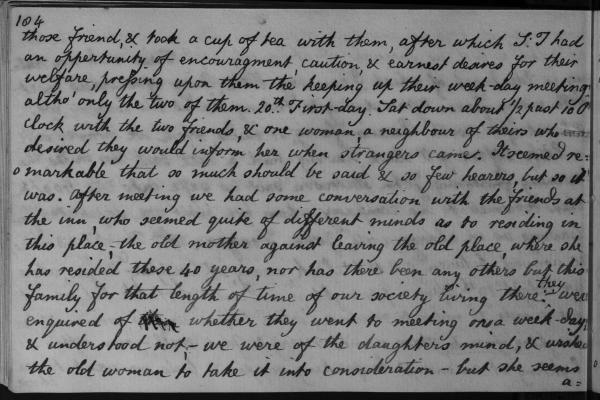 104
those friend, & took a cup of tea with them, after which S. T had
an opportunity of encouragment, caution, & earnest desires for their
welfare, pressing upon them the keeping up their week-day meeting
altho' only the two of them. 20th. First-day. Sat down about 1/2 past 10 O
Clock with the two friends, & one woman, a neighbour of theirs who
desired they would inform her when strangers came. It seemed re=
markable that so much should be said & so few hearers, but so it
was. After meeting we had some conversation with the friends at
the inn, who seemed quite of different minds as to residing in
this place,- the old mother against leaving the old place, where she
has resided these 40 years, nor has there been any others but this
family for that length of time of our society living there. they were
enquired of whether they went to meeting on a week-day,
& understood not,- we were of the daughters mind, & wished
the old woman to take it into consideration - but she seems
a=